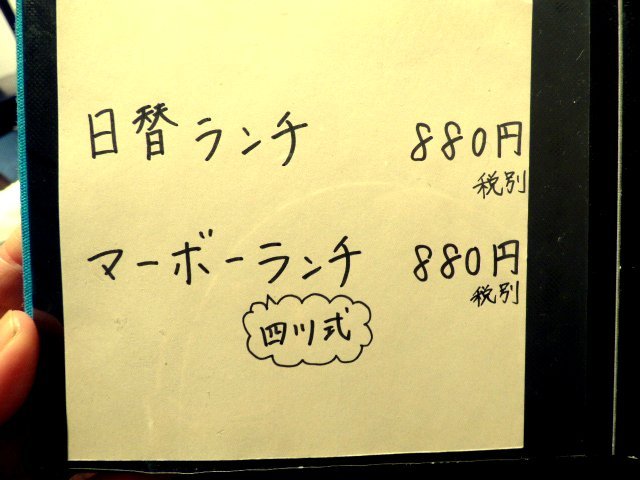 日替ランチ 880円
税別
マーボーランチ 880円
税別
四川式